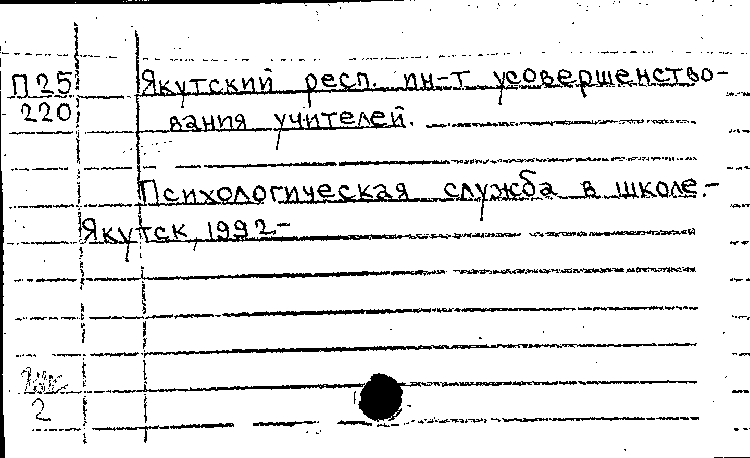 П25 Якутский респ. ин-т усовершенство-
220 вания учителей.
Психологическая служба в школе.-
Якутск, 1992-
2